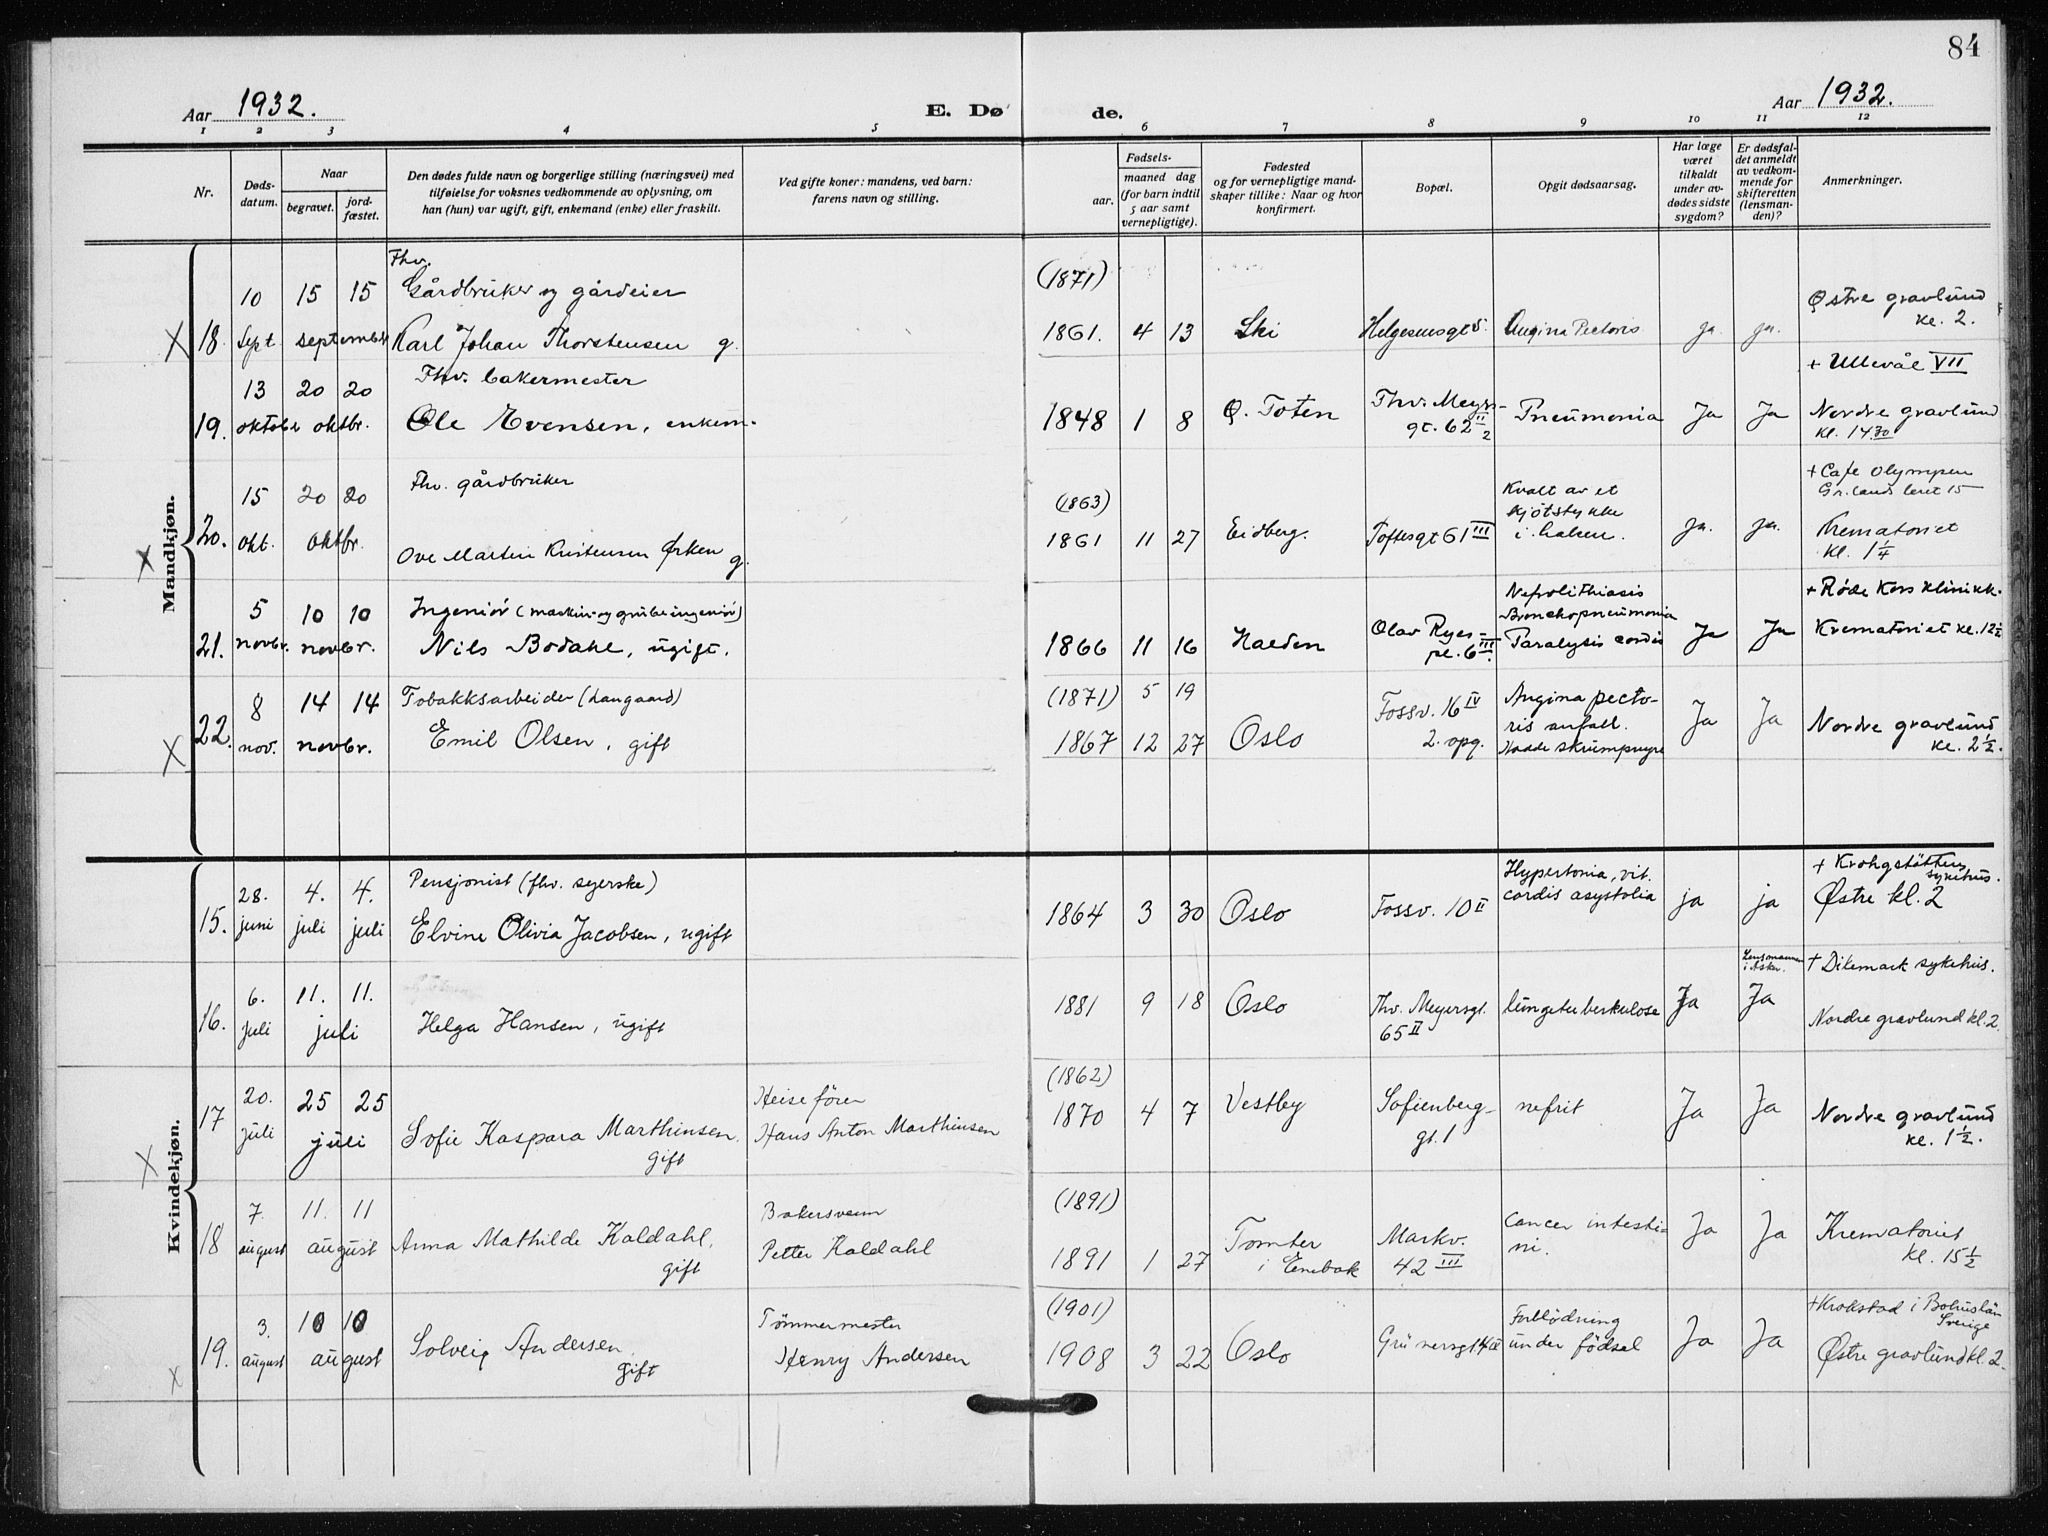 84
Aar 1932.
E. Døde.
Aar 1932.
1 2 3 4 5 6 7 8 9 10 11 12
Nr.
Døds-
datum.
Naar
begravet.
jord-
fæstet.
Den dødes fulde navn og borgerlige stilling (næringsvei) med
tilføielse for voksnes vedkommende av oplysning, om
han (hun) var ugift, gift, enkemand (enke) eller fraskilt.
Ved gifte koner: mandens, ved barn:
farens navn og stilling.
Fødsels-
aar. maaned dag
(for barn indtil
5 aar samt
vernepligtige).
Fødested
og for vernepligtige mand-
skaper tillike: Naar og hvor
konfirmert.
Bopæl.
Opgit dødsaarsag.
Har læge
været
tilkaldt
under av-
dødes sidste
sygdom?
Er dødsfal-
det anmeldt
av vedkom-
mende for
skifteretten
(lensman-
den)?
Anmerkninger.
Mandkjøn.
18. 10 Sept. 15 15 september
Fhv.
Gårdbruker og gårdeier
Karl Johan Thorstensen g.
(1871)
1861. 4 13 Ski Helgesensgt 5. Angina Pectoris ja. ja.
Østre gravlund
kl. 2.
19. 13 oktober 20 20 oktbr.
Fhv. bakermester
Ole Evensen, enkem.
1848 1 8 Ø. Toten
Thv. Meyers-
gt. 62 II 2
Pneumonia Ja Ja
+ Ullevål VII
Nordre gravlund
kl. 14.30
20. 15 okt. 20 20 oktbr.
Fhv. gårdbruker
Ove Martin Kristensen Ørken g.
(1863)
1861 11 27 Eidberg. Toftesgt 61 III
Kvalt av et
kjøtstykke
i halsen.
ja. ja.
+ Cafe Olympen
Gr.lands leret 15
Krematoriet
kl. 1 1/4
21. 5 novbr. 10 10 novbr.
Ingeniør (maskin- og grubeingeniør)
Nils Bodahl, ugift.
1866 11 16 Halden
Olav Ryes-
pl. 6 III.
Nefrolithiasis
Bronchopneumonia
Paralysis cordis
Ja Ja
+ Røde Kors klinikk.
Krematoriet kl. 12 1/2
22. 8 nov. 14 14 novbr.
Tobakksarbeider (Langaard)
Emil Olsen, gift
(1871) 5 19
1867 12 27 Oslo
Fossv. 16 IV
2. opg.
Angina pecto-
ris anfall.
Hadde skrumpnyre
Ja Ja
Nordre gravlund
kl. 2 1/2.
Kvindekjøn.
15. 28. juni 4. juli 4. juli
Pensjonist (fhv. syerske)
Elvine Olivia Jacobsen, ugift
1864 3 30 Oslo Fossv. 10 II
Hypertonia, vit.
cordis asystolia
ja ja
+ Krohgstøtten
sykehus.
Østre kl. 2
16. 6. juli 11. 11. juli
Helga Hansen, ugift
1881 9 18 Oslo
Thv. Meyersgt.
65 II
lungetuberkulose Ja
Lensmannen
i Asker.
Ja
+ Dikemark sykehus.
Nordre gravlund kl. 2.
17 20. juli 25 25 juli
Sofie Kaspara Marthinsen,
gift
Heisefører
Hans Anton Marthinsen
(1862)
1870 4 7 Vestby
Sofienberg-
gt. 1
nefrit Ja Ja
Nordre gravlund
kl. 1 1/2.
18 7. august 11. 11 august
Anna Mathilde Kaldahl,
gift
Bakersvenn
Petter Kaldahl
(1891)
1891 1 27
Tomter
i Enebak
Markv.
42 III
Cancer intesti-
ni.
Ja Ja
Krematoriet
kl. 15 1/2
19. 3. august 10 10 august
Solveig Andersen,
gift
Tømmermester
Henry Andersen
(1901)
1908 3 22 Oslo Grünersgt
Forblødning
under fødsel
Ja Ja
+ Krokstad i Bohuslän
Sverige
Østre gravlund kl. 2.